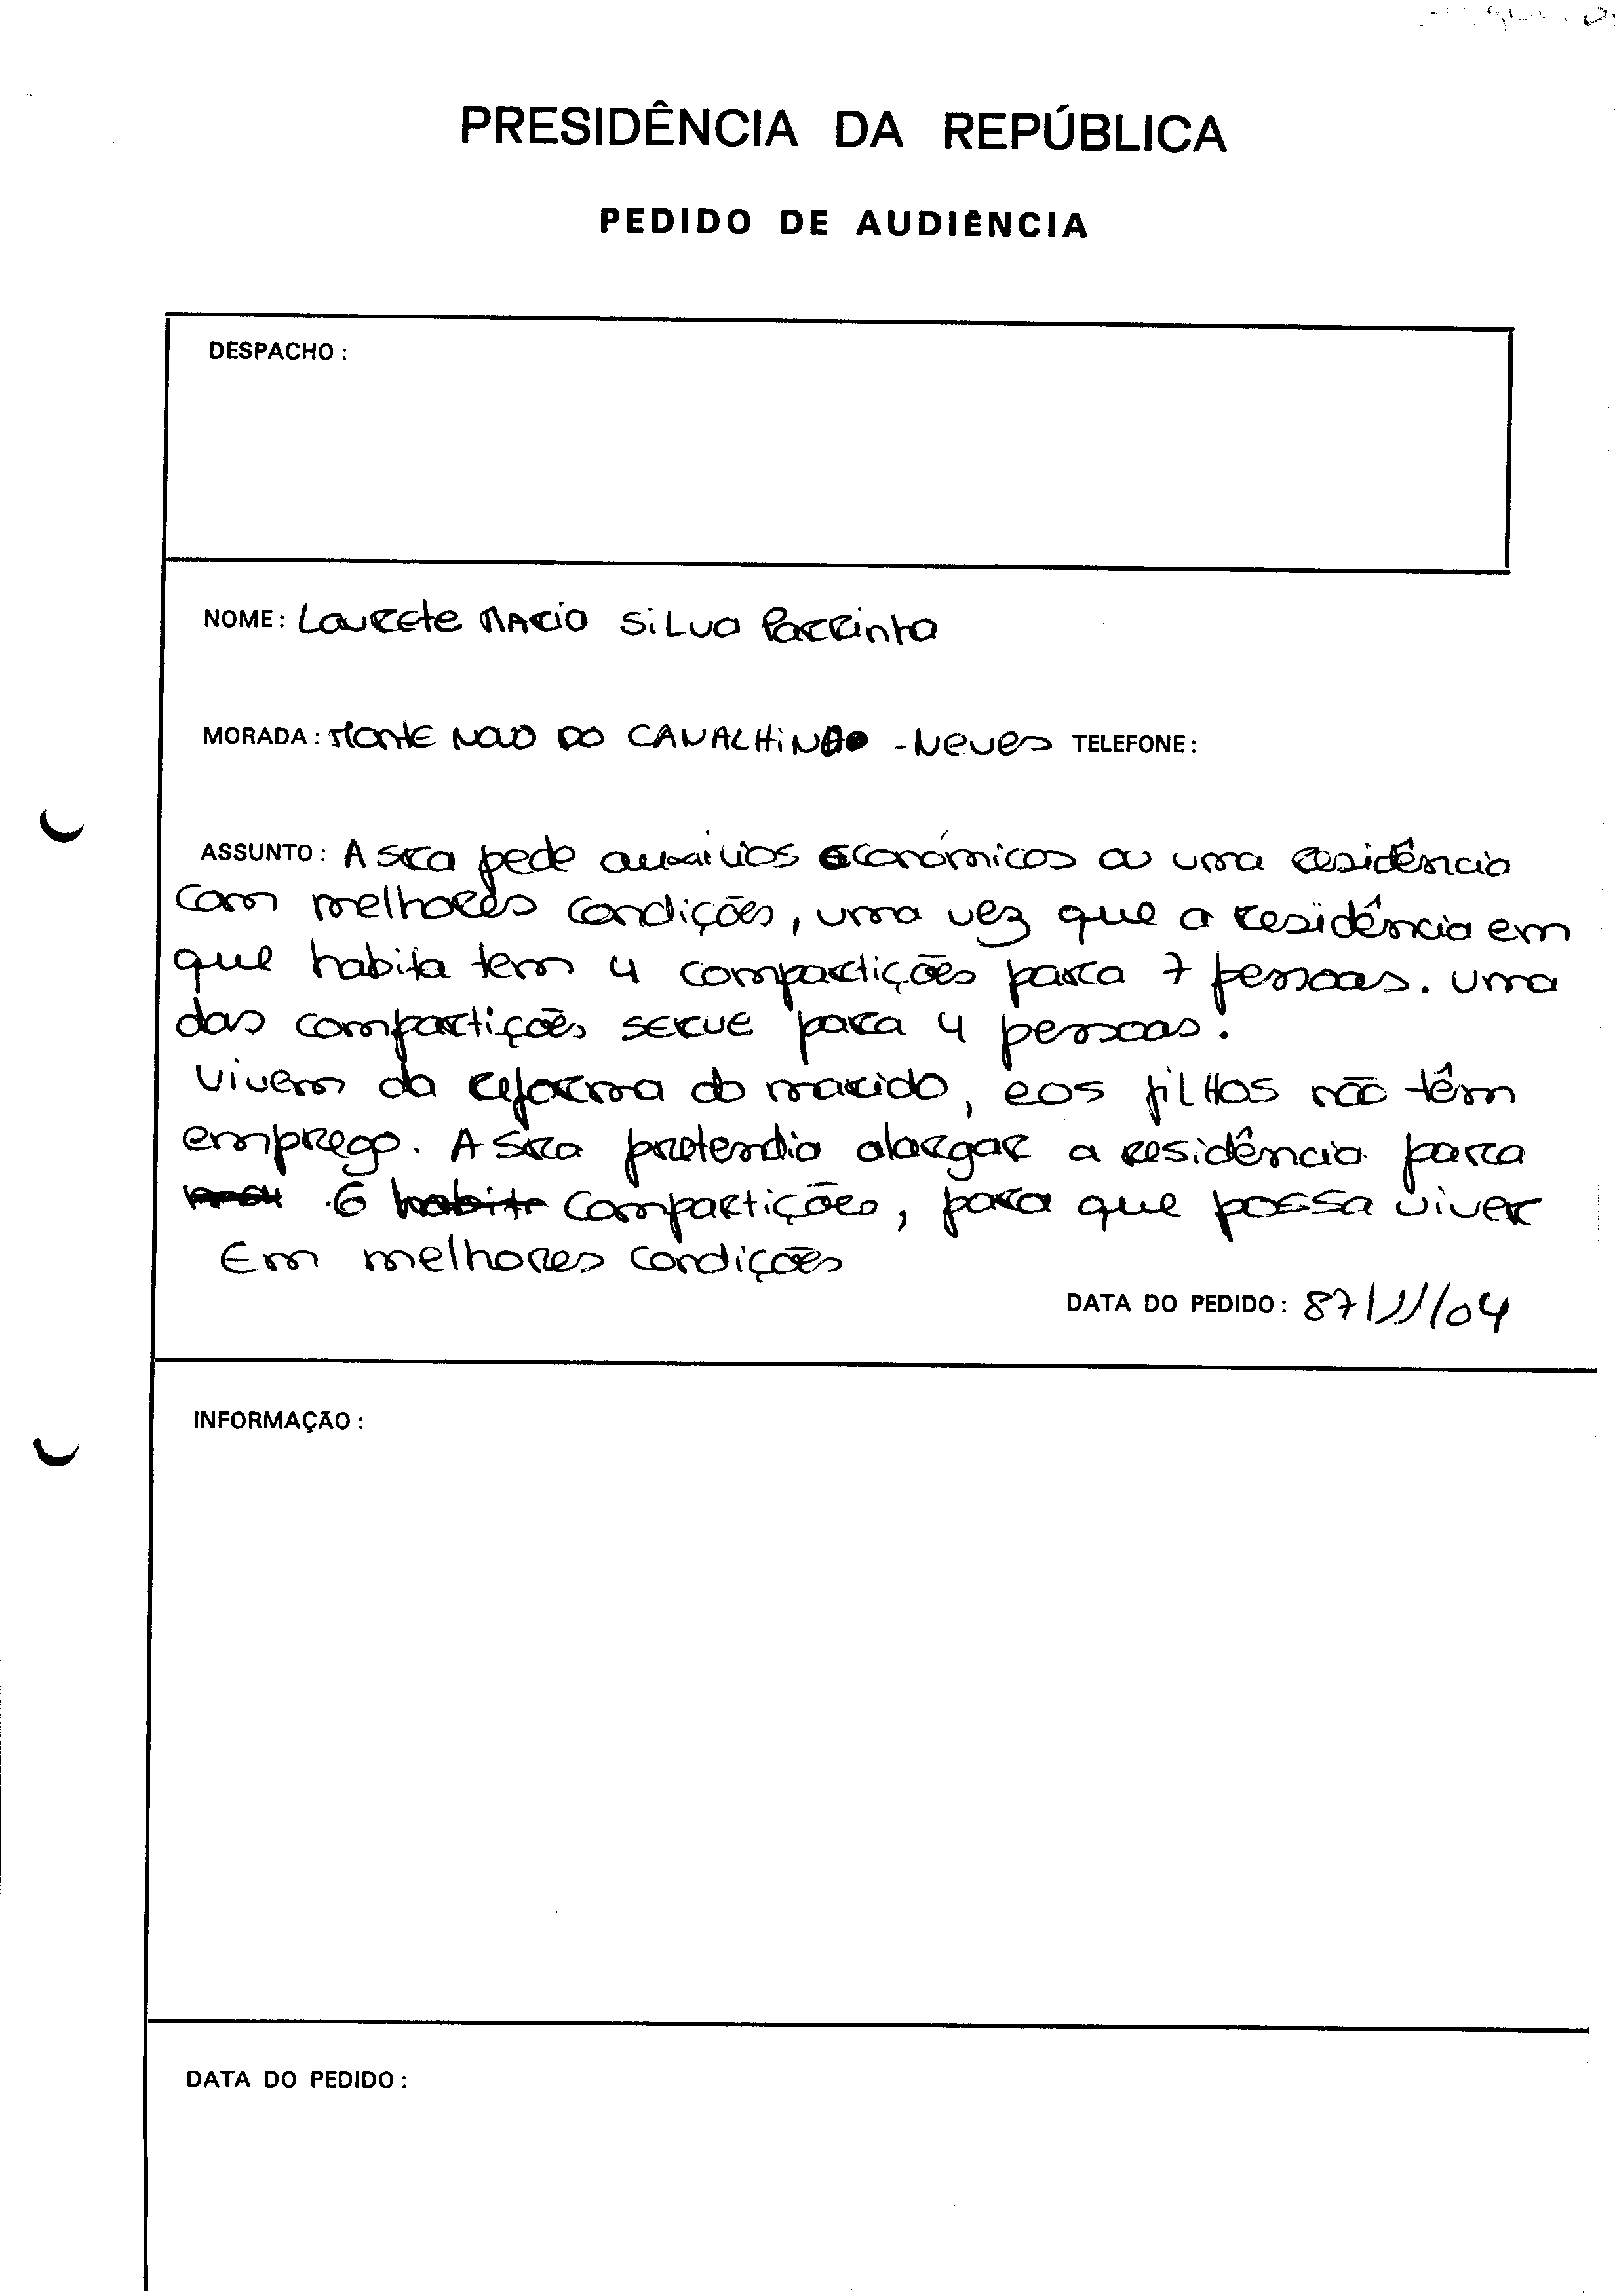 PRESIDÊNCIA DA REPÚBLICA
PEDIDO DE AUDIÊNCIA
DESPACHO :
NOME : Laurete Maria Silva Parrinha
MORADA : Monte Novo do CAVALHINHO - Neves TELEFONE :
ASSUNTO : A Sra pede auxilios económicos ou uma residência
com melhores condições, uma vez que a residência em
que habita tem 4 compartições para 7 pessoas. uma
das compartições serve para 4 pessoas.
Vivem da reforma do marido, e os filhos não têm
emprego. A Sra pretendia alargar a residência para
6 habita compartições, para que possa viver
Em melhores condições
DATA DO PEDIDO : 87/11/04
INFORMAÇÃO :
DATA DO PEDIDO :